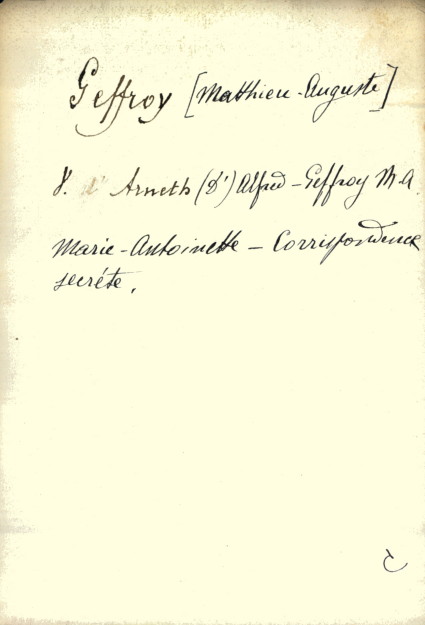 Geffroy [Mathieu-Auguste]
V. d' Arneth (d') Alfred - Geffroy M. A
Marie-Antoinette - Correspondence
secréte.